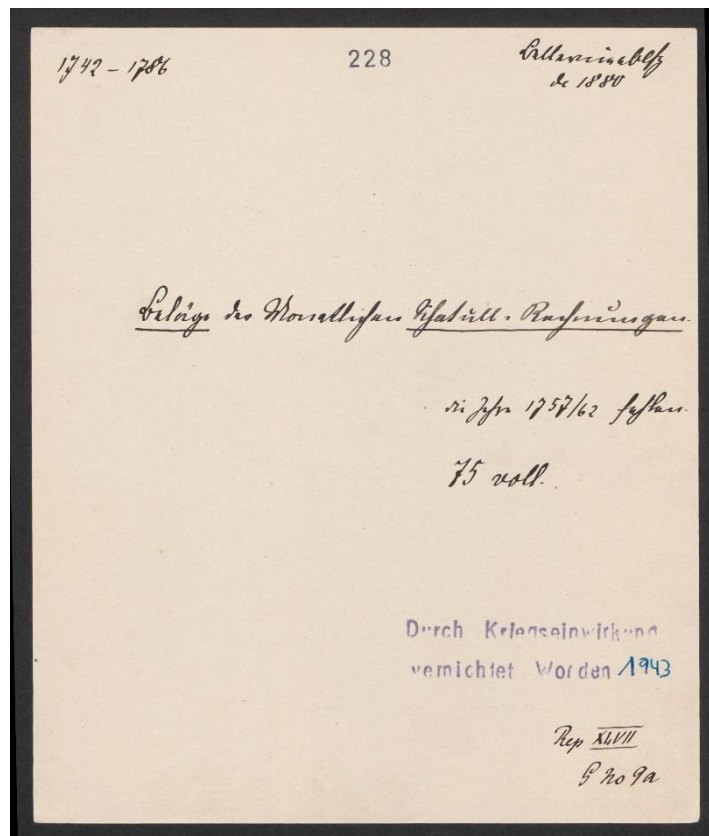 1742 – 1786
228
Bellevueablfg
de 1880
Beläge der Monatlichen Schatull-Rechnungen.
die Jahre 1757/62 fehlen.
75 voll.
Durch Kriegseinwirkung
vernichtet Worden 1943
Rep XLVII
G No 9a